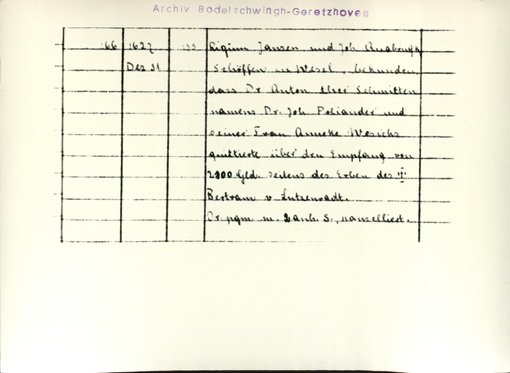 Archiv Bodelschwingh-Geretzhoven
166 1627 Jansen und Joh
Dez 31 Schöffen in Wesel, bekunden,
dass Dr. Anton Schmitten
namens Dr. Joh Poliander und
seiner Frau Anneke Wesichs
quittierte über den Empfang von
2800 Gld. seitens des Erben des †
Bertram v Lutzenradt.
Or pgm. m. 2 anh. S., kanzelliert.